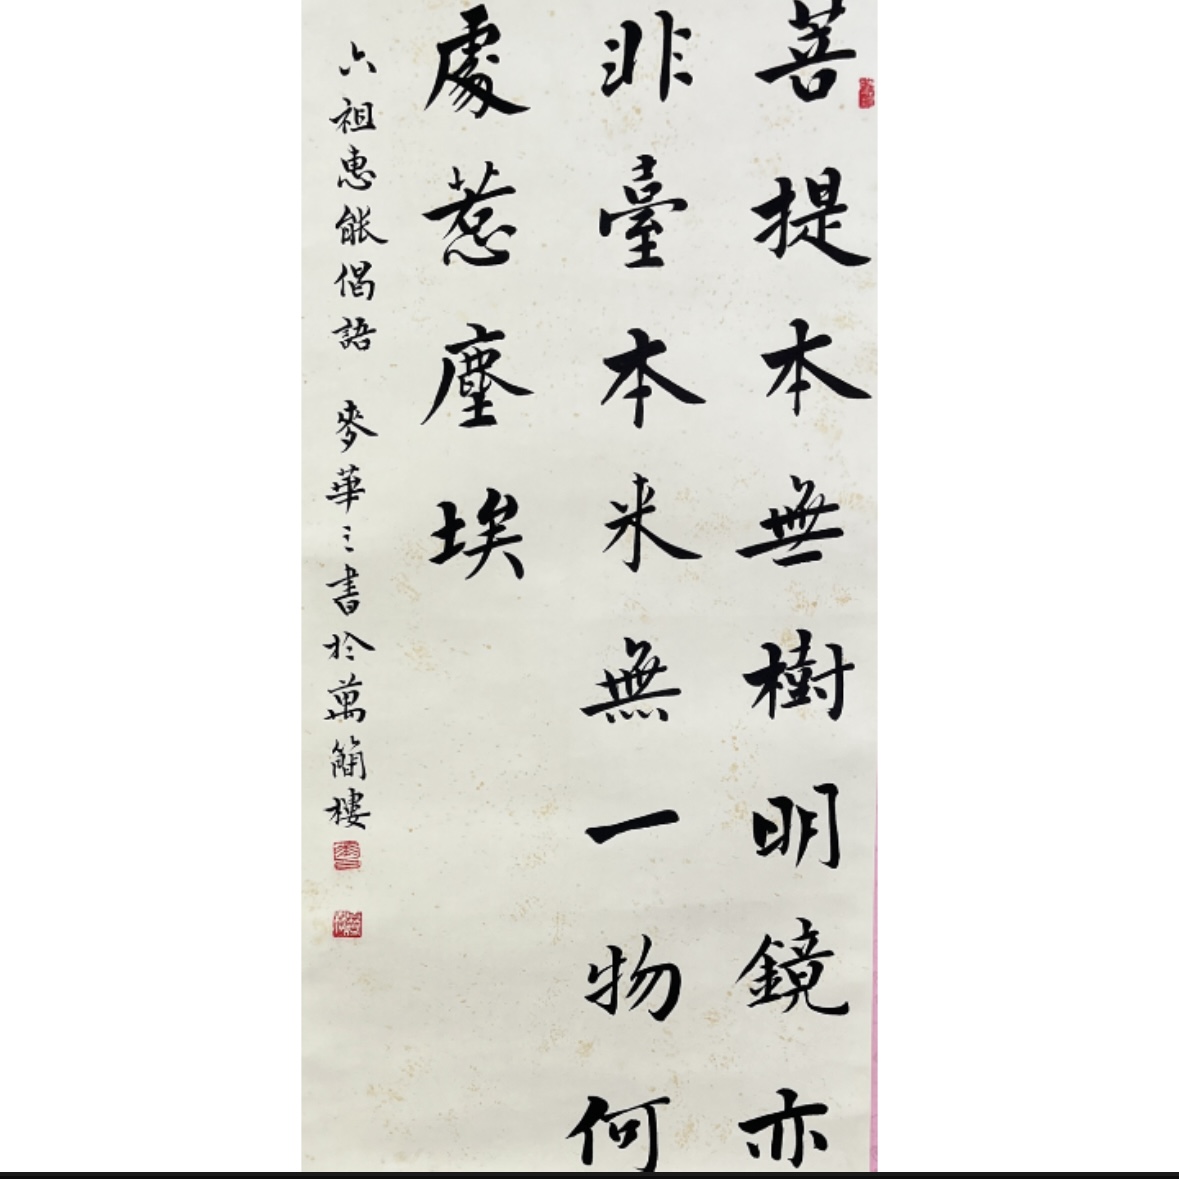 菩提本無樹明鏡亦
非臺本来無一物何
處惹塵埃
六祖惠能偈語 麥華三書於萬簡樓